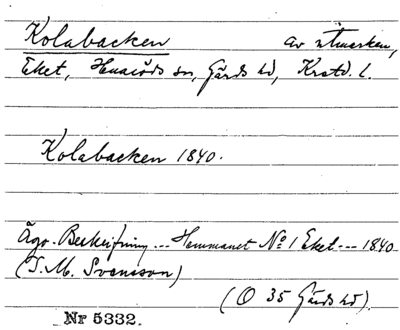 Kolabacken av utmarken,
Eket, Huaröds sn, Gärds hd, Krstd. l.
Kolabacken 1840.
Ägo-Beskrifning --- Hemmanet No 1 Eket --- 1840
(T. M. Svensson)
(O 35 Gärds hd).
Nr 5332.